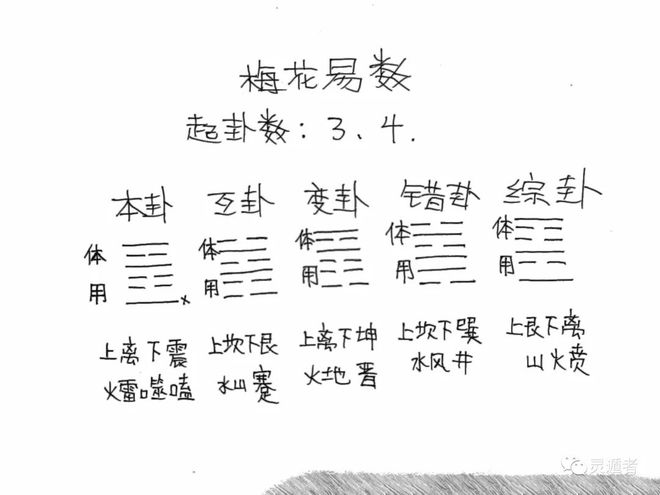 梅花易数
起卦数：3、4.
本卦 互卦 变卦 错卦 综卦
体 体 体 体 体
用 用 用 用 用
上离下震 上坎下艮 上离下坤 上坎下巽 上艮下离
火雷噬嗑 水山蹇 火地晋 水风井 山火贲
灵遁者